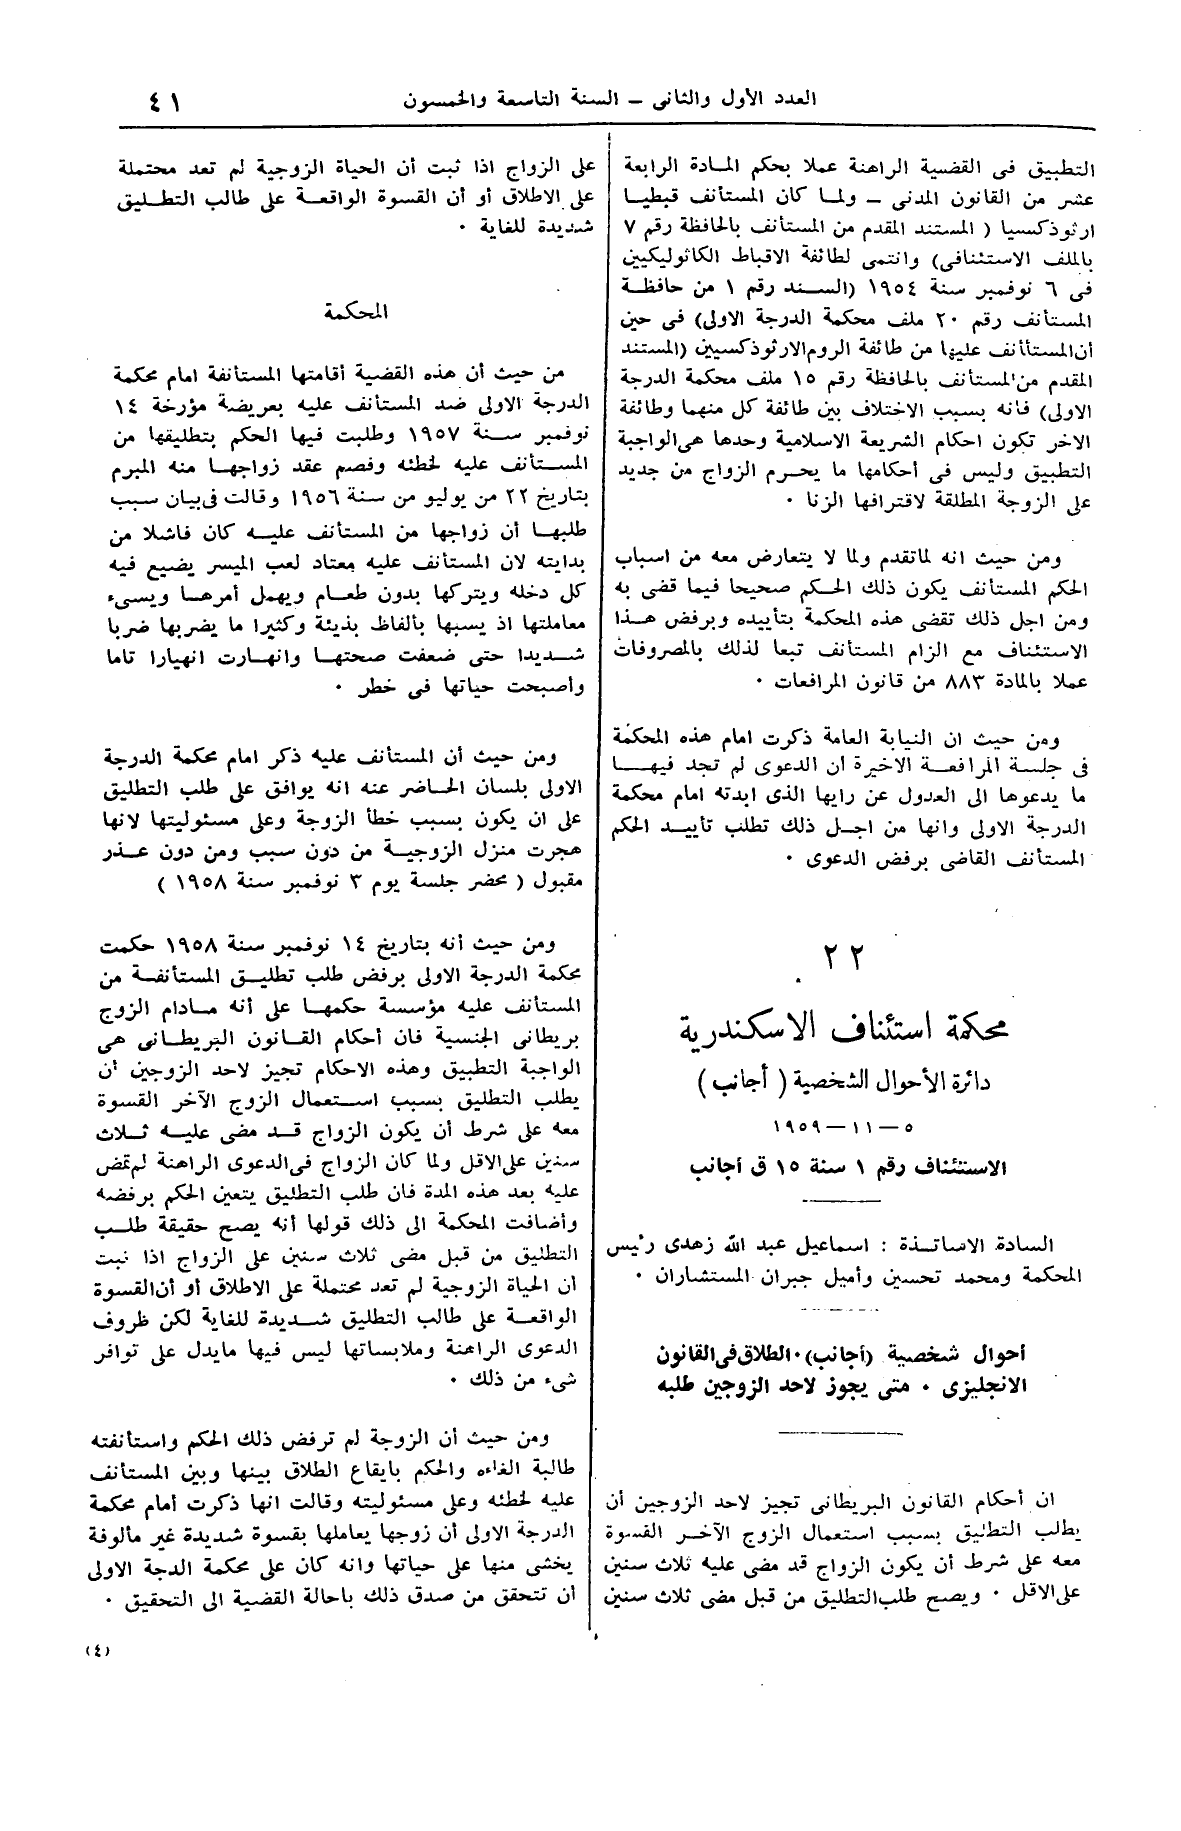 العدد الأول والثانى – السنة التاسعة والخمسون
٤١
التطبيق فى القضية الراهنة عملا بحكم المادة الرابعة
عشر من القانون المدنى – ولما كان المستأنف قبطيا
ارثوذكسيا ( المستند المقدم من المستأنف بالحافظة رقم ٧
بالملف الاستئنافى) وانتمى لطائفة الاقباط الكاثوليكيين
فى ٦ نوفمبر سنة ١٩٥٤ (السند رقم ١ من حافظة
المستأنف رقم ٢٠ ملف محكمة الدرجة الاولى) فى حين
أن المستأنف عليها من طائفة الروم الارثوذكسيين (المستند
المقدم من المستأنف بالحافظة رقم ١٥ ملف محكمة الدرجة
الاولى) فانه بسبب الاختلاف بين طائفة كل منهما وطائفة
الاخر تكون احكام الشريعة الاسلامية وحدها هى الواجبة
التطبيق وليس فى أحكامها ما يحرم الزواج من جديد
على الزوجة المطلقة لاقترافها الزنا ٠
ومن حيث انه لماتقدم ولما لا يتعارض معه من اسباب
الحكم المستأنف يكون ذلك الحكم صحيحا فيما قضى به
ومن اجل ذلك تقضى هذه المحكمة بتأييده وبرفض هذا
الاستئناف مع الزام المستأنف تبعا لذلك بالمصروفات
عملا بالمادة ٨٨٣ من قانون المرافعات ٠
ومن حيث ان النيابة العامة ذكرت امام هذه المحكمة
فى جلسة المرافعة الاخيرة أن الدعوى لم تجد فيها
ما يدعوها الى العدول عن رايها الذى ابدته امام محكمة
الدرجة الاولى وانها من اجل ذلك تطلب تأييد الحكم
المستأنف القاضى برفض الدعوى ٠
٢٢
محكمة استئناف الاسكندرية
دائرة الأحوال الشخصية ( أجانب )
٥ – ١١ – ١٩٥٩
الاستئناف رقم ١ سنة ١٥ ق أجانب
السادة الاساتذة : اسماعيل عبد الله زهدى رئيس
المحكمة ومحمد تحسين وأميل جبران المستشاران ٠
أحوال شخصية (أجانب) ٠ الطلاق فى القانون
الانجليزى ٠ متى يجوز لاحد الزوجين طلبه
ان أحكام القانون البريطانى تجيز لاحد الزوجين أن
يطلب التطليق بسبب استعمال الزوج الآخر القسوة
معه على شرط أن يكون الزواج قد مضى عليه ثلاث سنين
على الاقل ٠ ويصح طلب التطليق من قبل مضى ثلاث سنين
على الزواج اذا ثبت أن الحياة الزوجية لم تعد محتملة
على الاطلاق أو أن القسوة الواقعة على طالب التطليق
شديدة للغاية ٠
المحكمة
من حيث أن هذه القضية أقامتها المستأنفة امام محكمة
الدرجة الاولى ضد المستأنف عليه بعريضة مؤرخة ١٤
نوفمبر سنة ١٩٥٧ وطلبت فيها الحكم بتطليقها من
المستأنف عليه لخطئه وفصم عقد زواجها منه المبرم
بتاريخ ٢٢ من يوليو من سنة ١٩٥٦ وقالت فى بيان سبب
طلبها أن زواجها من المستأنف عليه كان فاشلا من
بدايته لان المستأنف عليه معتاد لعب الميسر يضيع فيه
كل دخله ويتركها بدون طعام ويهمل أمرها ويسىء
معاملتها اذ يسبها بألفاظ بذيئة وكثيرا ما يضربها ضربا
شديدا حتى ضعفت صحتها وانهارت انهيارا تاما
وأصبحت حياتها فى خطر ٠
ومن حيث أن المستأنف عليه ذكر امام محكمة الدرجة
الاولى بلسان الحاضر عنه انه يوافق على طلب التطليق
على ان يكون بسبب خطأ الزوجة وعلى مسئوليتها لانها
هجرت منزل الزوجية من دون سبب ومن دون عذر
مقبول ( محضر جلسة يوم ٣ نوفمبر سنة ١٩٥٨ )
ومن حيث أنه بتاريخ ١٤ نوفمبر سنة ١٩٥٨ حكمت
محكمة الدرجة الاولى برفض طلب تطليق المستأنفة من
المستأنف عليه مؤسسة حكمها على أنه مادام الزوج
بريطانى الجنسية فان أحكام القانون البريطانى هى
الواجبة التطبيق وهذه الاحكام تجيز لاحد الزوجين أن
يطلب التطليق بسبب استعمال الزوج الآخر القسوة
معه على شرط أن يكون الزواج قد مضى عليه ثلاث
سنين على الاقل ولما كان الزواج فى الدعوى الراهنة لم تمض
عليه بعد هذه المدة فان طلب التطليق يتعين الحكم برفضه
وأضافت المحكمة الى ذلك قولها أنه يصح حقيقة طلب
التطليق من قبل مضى ثلاث سنين على الزواج اذا ثبت
أن الحياة الزوجية لم تعد محتملة على الاطلاق أو أن القسوة
الواقعة على طالب التطليق شديدة للغاية لكن ظروف
الدعوى الراهنة وملابساتها ليس فيها مايدل على توافر
شىء من ذلك ٠
ومن حيث أن الزوجة لم ترفض ذلك الحكم واستأنفته
طالبة الغاءه والحكم بايقاع الطلاق بينها وبين المستأنف
عليه لخطئه وعلى مسئوليته وقالت انها ذكرت أمام محكمة
الدرجة الاولى أن زوجها يعاملها بقسوة شديدة غير مألوفة
يخشى منها على حياتها وانه كان على محكمة الدجة الاولى
أن تتحقق من صدق ذلك باحالة القضية الى التحقيق ٠
(٤)